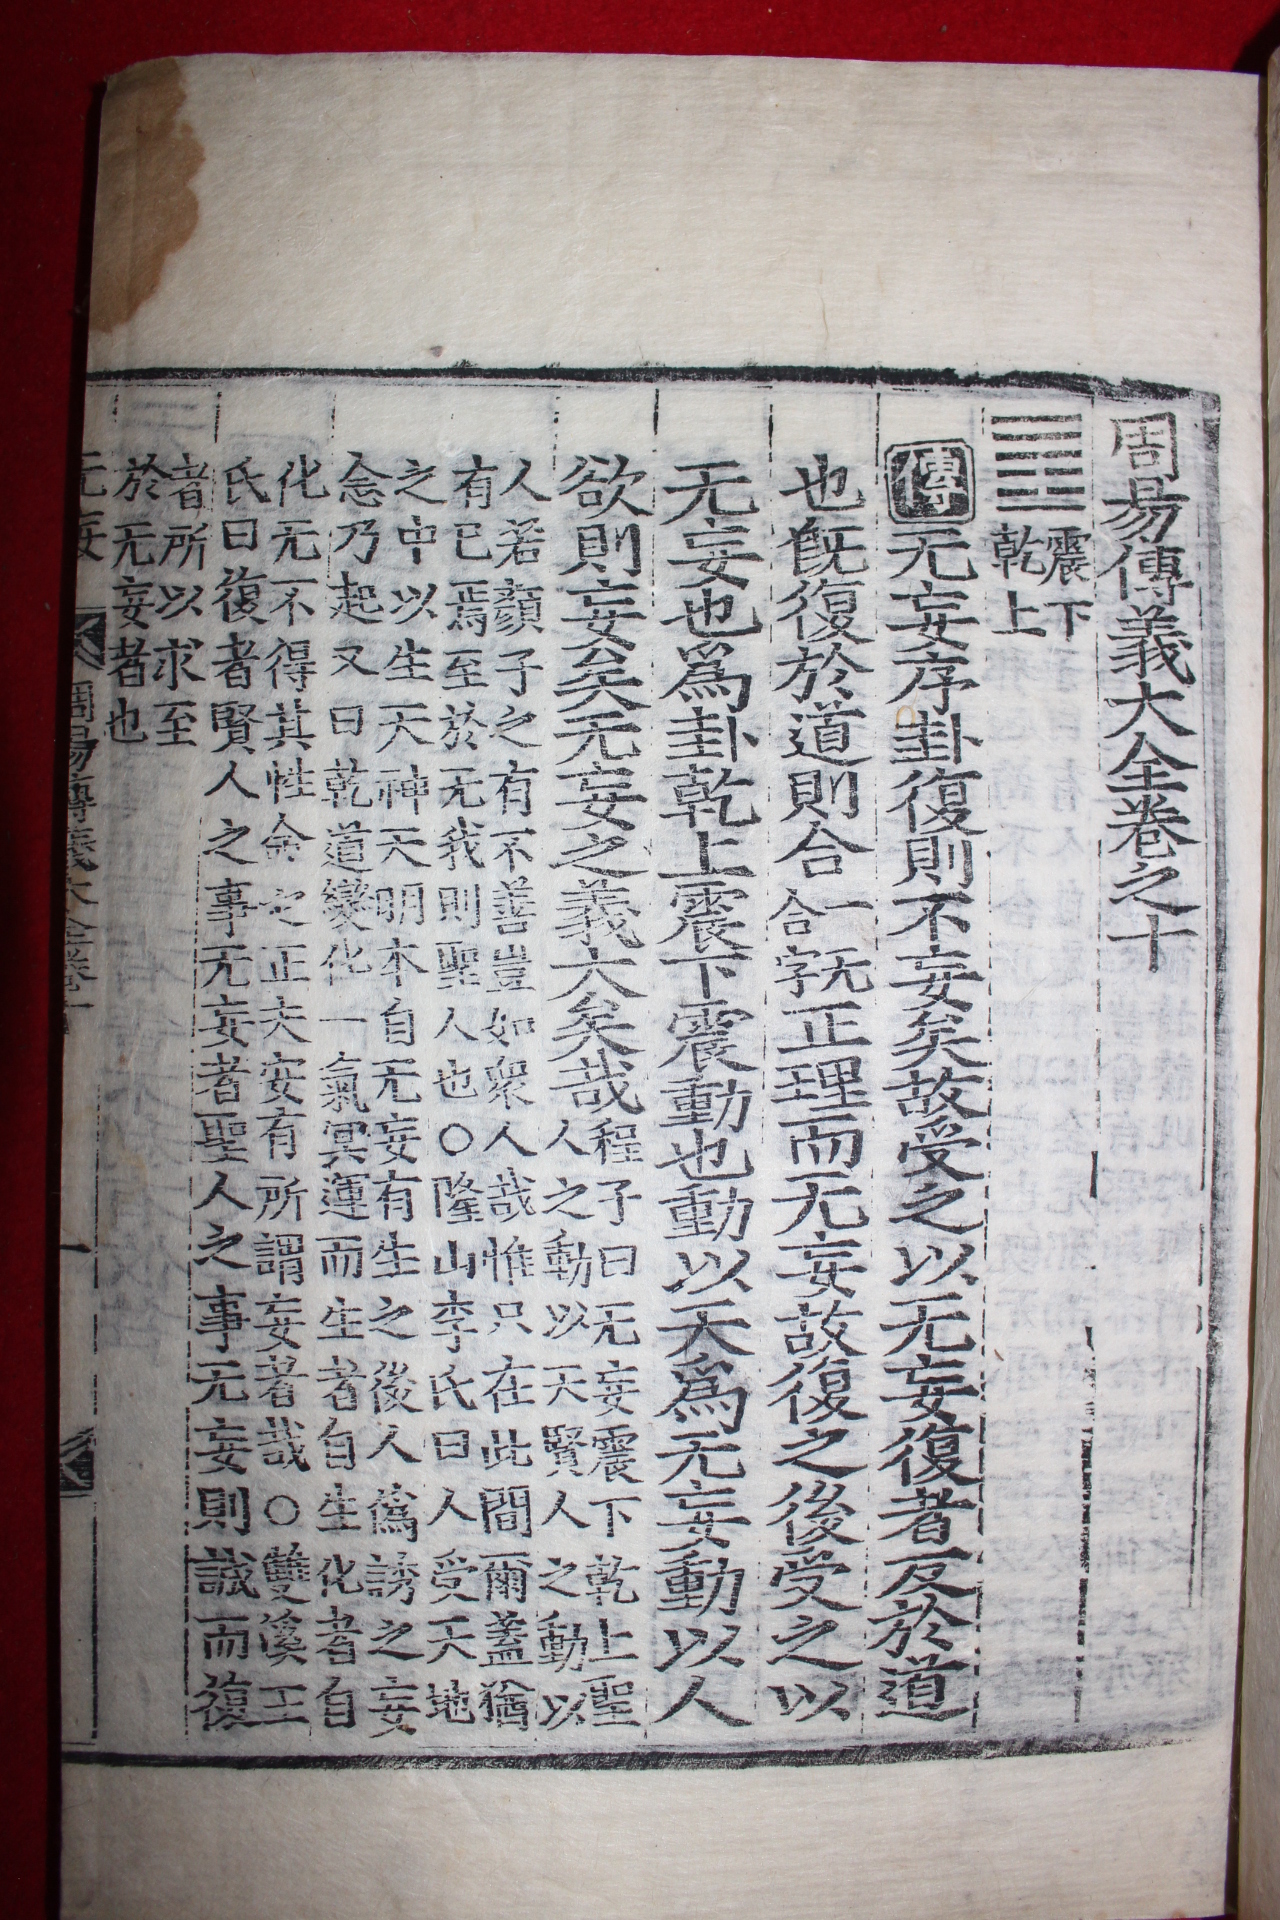 周易傳義大全卷之十
䷘震下
乾上
傳无妄序卦復則不妄矣故受之以无妄復者反於道
也旣復於道則合一无合字正理而无妄故復之後受之以
无妄也爲卦乾上震下震動也動以天爲无妄動以人
欲則妄矣无妄之義大矣哉程子曰无妄震下乾上聖
人之動以天賢人之動以
人若顔子之有不善豈如衆人哉惟只在此間爾蓋猶
有已焉至於无我則聖人也○隆山李氏曰人受天地
之中以生天神天明本自无妄有生之後人爲誘之妄
念乃起又曰乾道變化一氣冥運而生者自生化者自
化无不得其性命之正夫安有所謂妄者哉○雙溪王
氏曰復者賢人之事无妄者聖人之事无妄則誠而復
者所以求至
於无妄者也
无妄 周易傳義大全卷十 一